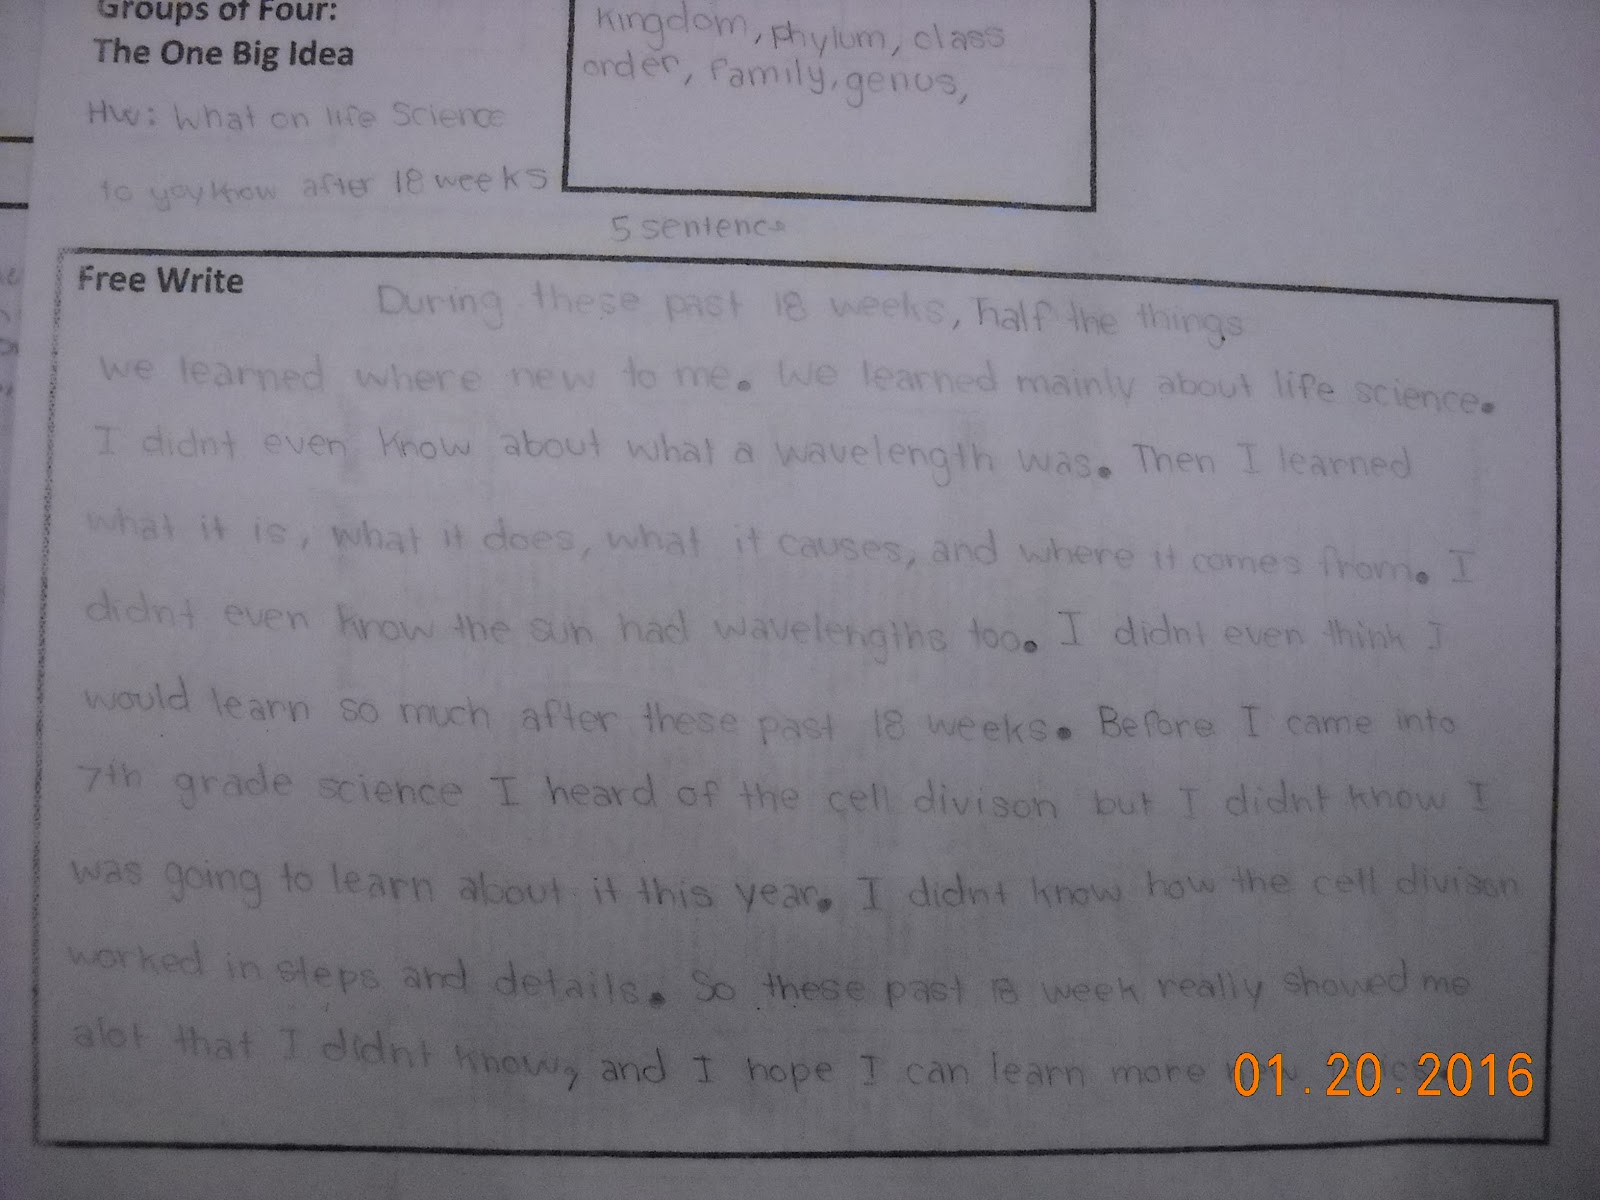 Groups of Four:
The One Big Idea
HW: What on life Science
to you know after 18 weeks
Kingdom, Phylum, class
order, family, genus,
5 sentence
Free Write
During these past 18 weeks, half the things
we learned where new to me. We learned mainly about life science.
I didnt even know about what a wavelength was. Then I learned
what it is, what it does, what it causes, and where it comes from. I
didnt even know the sun had wavelengths too. I didnt even think I
would learn so much after these past 18 weeks. Before I came into
7th grade science I heard of the cell divison but I didnt know I
was going to learn about it this year. I didnt know how the cell divison
worked in steps and details. So these past 18 week really showed me
alot that I didnt know, and I hope I can learn more
01.20.2016